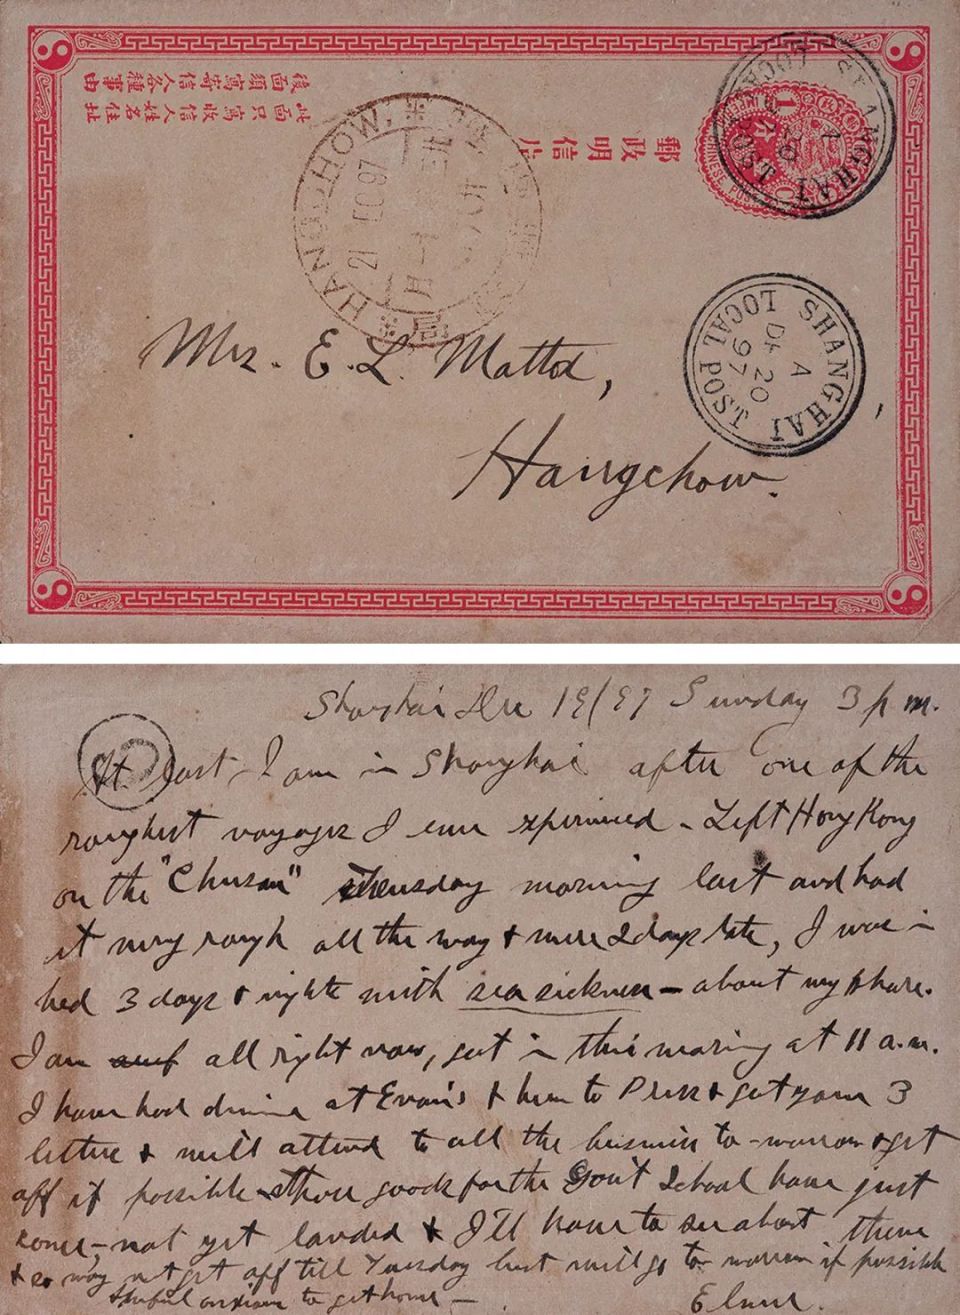 後面須寫寄信人各種事由
此面只寫收信人姓名住址
郵政明信片
1
CHINESE
SHANGHAI
LOCAL POST
A
20
HANGCHOW.
21 DC 97
局
月
Mrs. E. L. Mattox,
Hangchow.
SHANGHAI
LOCAL POST
A
20
97
Shanghai Dec 19/97 Sunday 3 p m.
At last I am in Shanghai after one of the
roughest voyages I ever experienced - Left Hong Kong
on the "Chusan" morning last and had
it very rough all the way & were 2 days late, I was in
bed 3 days & nights with sea sickness - about my share.
I am all right now, got in this morning at 11 a.m.
I have had dinner at Evans & been to Press & got your 3
letters & will attend to all the business to-morrow & get
off if possible - those goods for the Gov't School have just
come - not yet landed & I'll have to see about them
& so may not get off till Tuesday but will go to-morrow if possible
anxious to get home -
Elmer